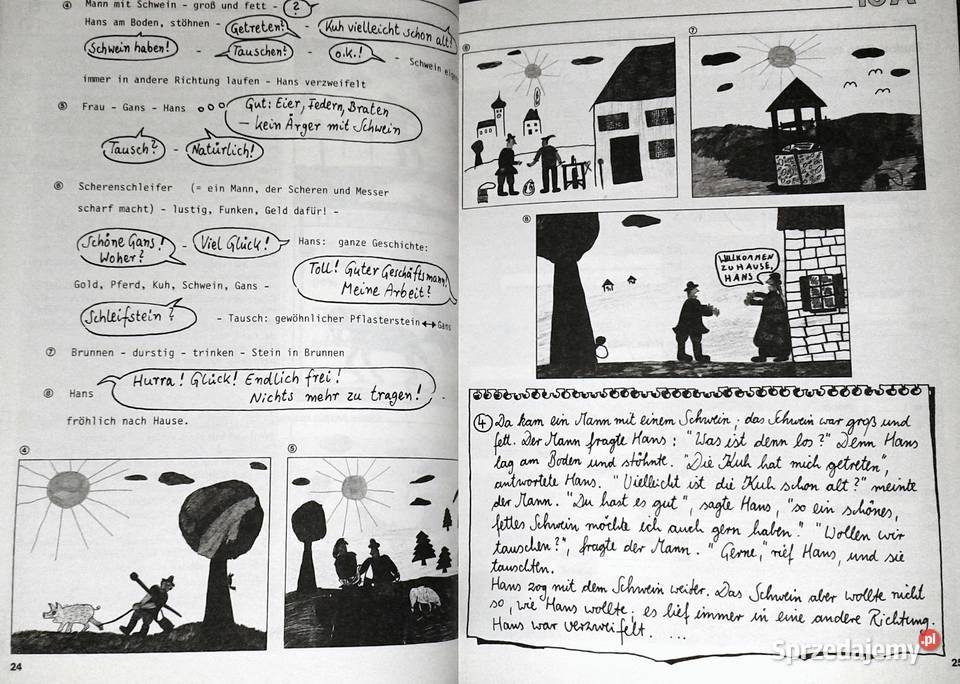 ④ Mann mit Schwein - groß und fett - ?
Hans am Boden, stöhnen - Getreten? - Kuh vielleicht schon alt!
Schwein haben! - Tauschen? - o.k.! - Schwein
immer in andere Richtung laufen - Hans verzweifelt
⑤ Frau - Gans - Hans
Gut: Eier, Federn, Braten
– kein Ärger mit Schwein
Tausch? - Natürlich!
⑥ Scherenschleifer (= ein Mann, der Scheren und Messer
scharf macht) - lustig, Funken, Geld dafür! -
Schöne Gans!
Woher?
- Viel Glück! Hans: ganze Geschichte:
Gold, Pferd, Kuh, Schwein, Gans -
Toll! Guter Geschäftsmann!
Meine Arbeit?
Schleifstein? - Tausch: gewöhnlicher Pflasterstein ↔ Gans
⑦ Brunnen - durstig - trinken - Stein in Brunnen
⑧ Hans
Hurra! Glück! Endlich frei!
Nichts mehr zu tragen!
fröhlich nach Hause.
④
⑤
24
⑥
⑦
⑧
WILLKOMMEN
ZU HAUSE,
HANS
④ Da kam ein Mann mit einem Schwein; das Schwein war groß und
fett. Der Mann fragte Hans: "Was ist denn los?" Denn Hans
lag am Boden und stöhnte. "Die Kuh hat mich getreten",
antwortete Hans. "Vielleicht ist die Kuh schon alt?" meinte
der Mann. "Du hast es gut", sagte Hans, "so ein schönes,
fettes Schwein möchte ich auch gern haben." "Wollen wir
tauschen?", fragte der Mann. "Gerne," rief Hans, und sie
tauschten.
Hans zog mit dem Schwein weiter. Das Schwein aber wollte nicht
so, wie Hans wollte; es lief immer in eine andere Richtung.
Hans war verzweifelt. ...
Sprzedajemy.pl